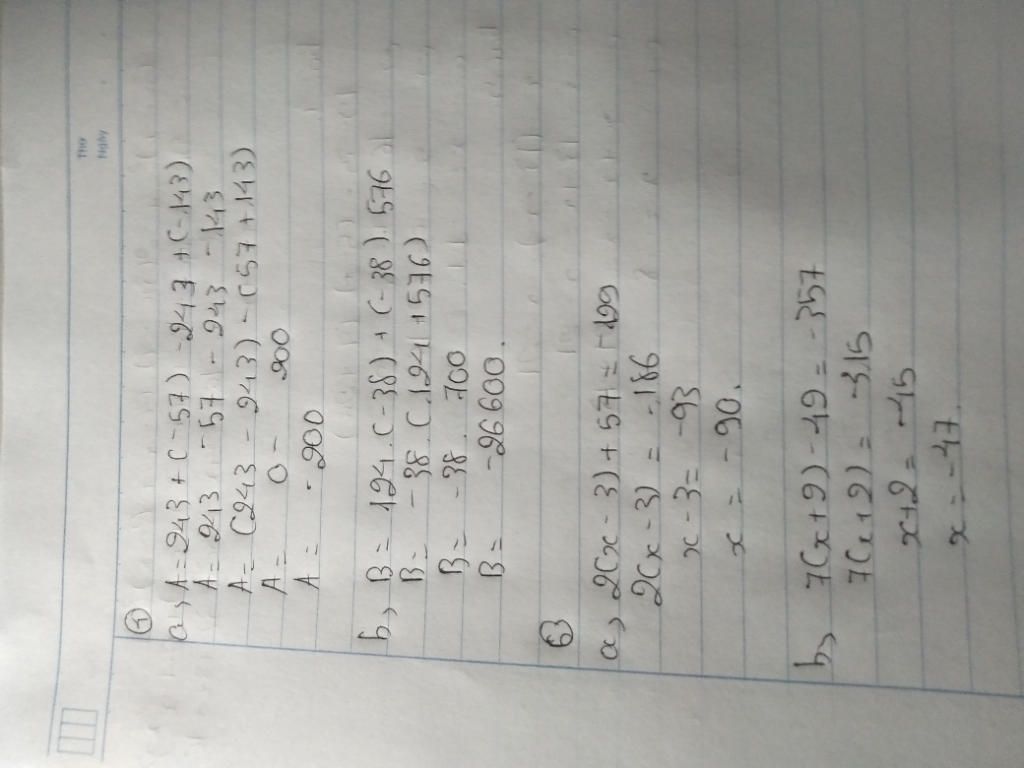 Thứ
Ngày
①
a, A = 243 + (-57) - 243 + (-143)
A = 243 - 57 - 243 - 143
A = (243 - 243) - (57 + 143)
A = 0 - 200
A = -200
b, B = 124 . (-38) + (-38) . 576
B = -38 . (124 + 576)
B = -38 . 700
B = -26600.
a, 2(x - 3) + 57 = -129
2(x - 3) = -186
x - 3 = -93
x = -90.
b, 7(x + 2) - 42 = -357
7(x + 2) = -315
x + 2 = -45
x = -47.